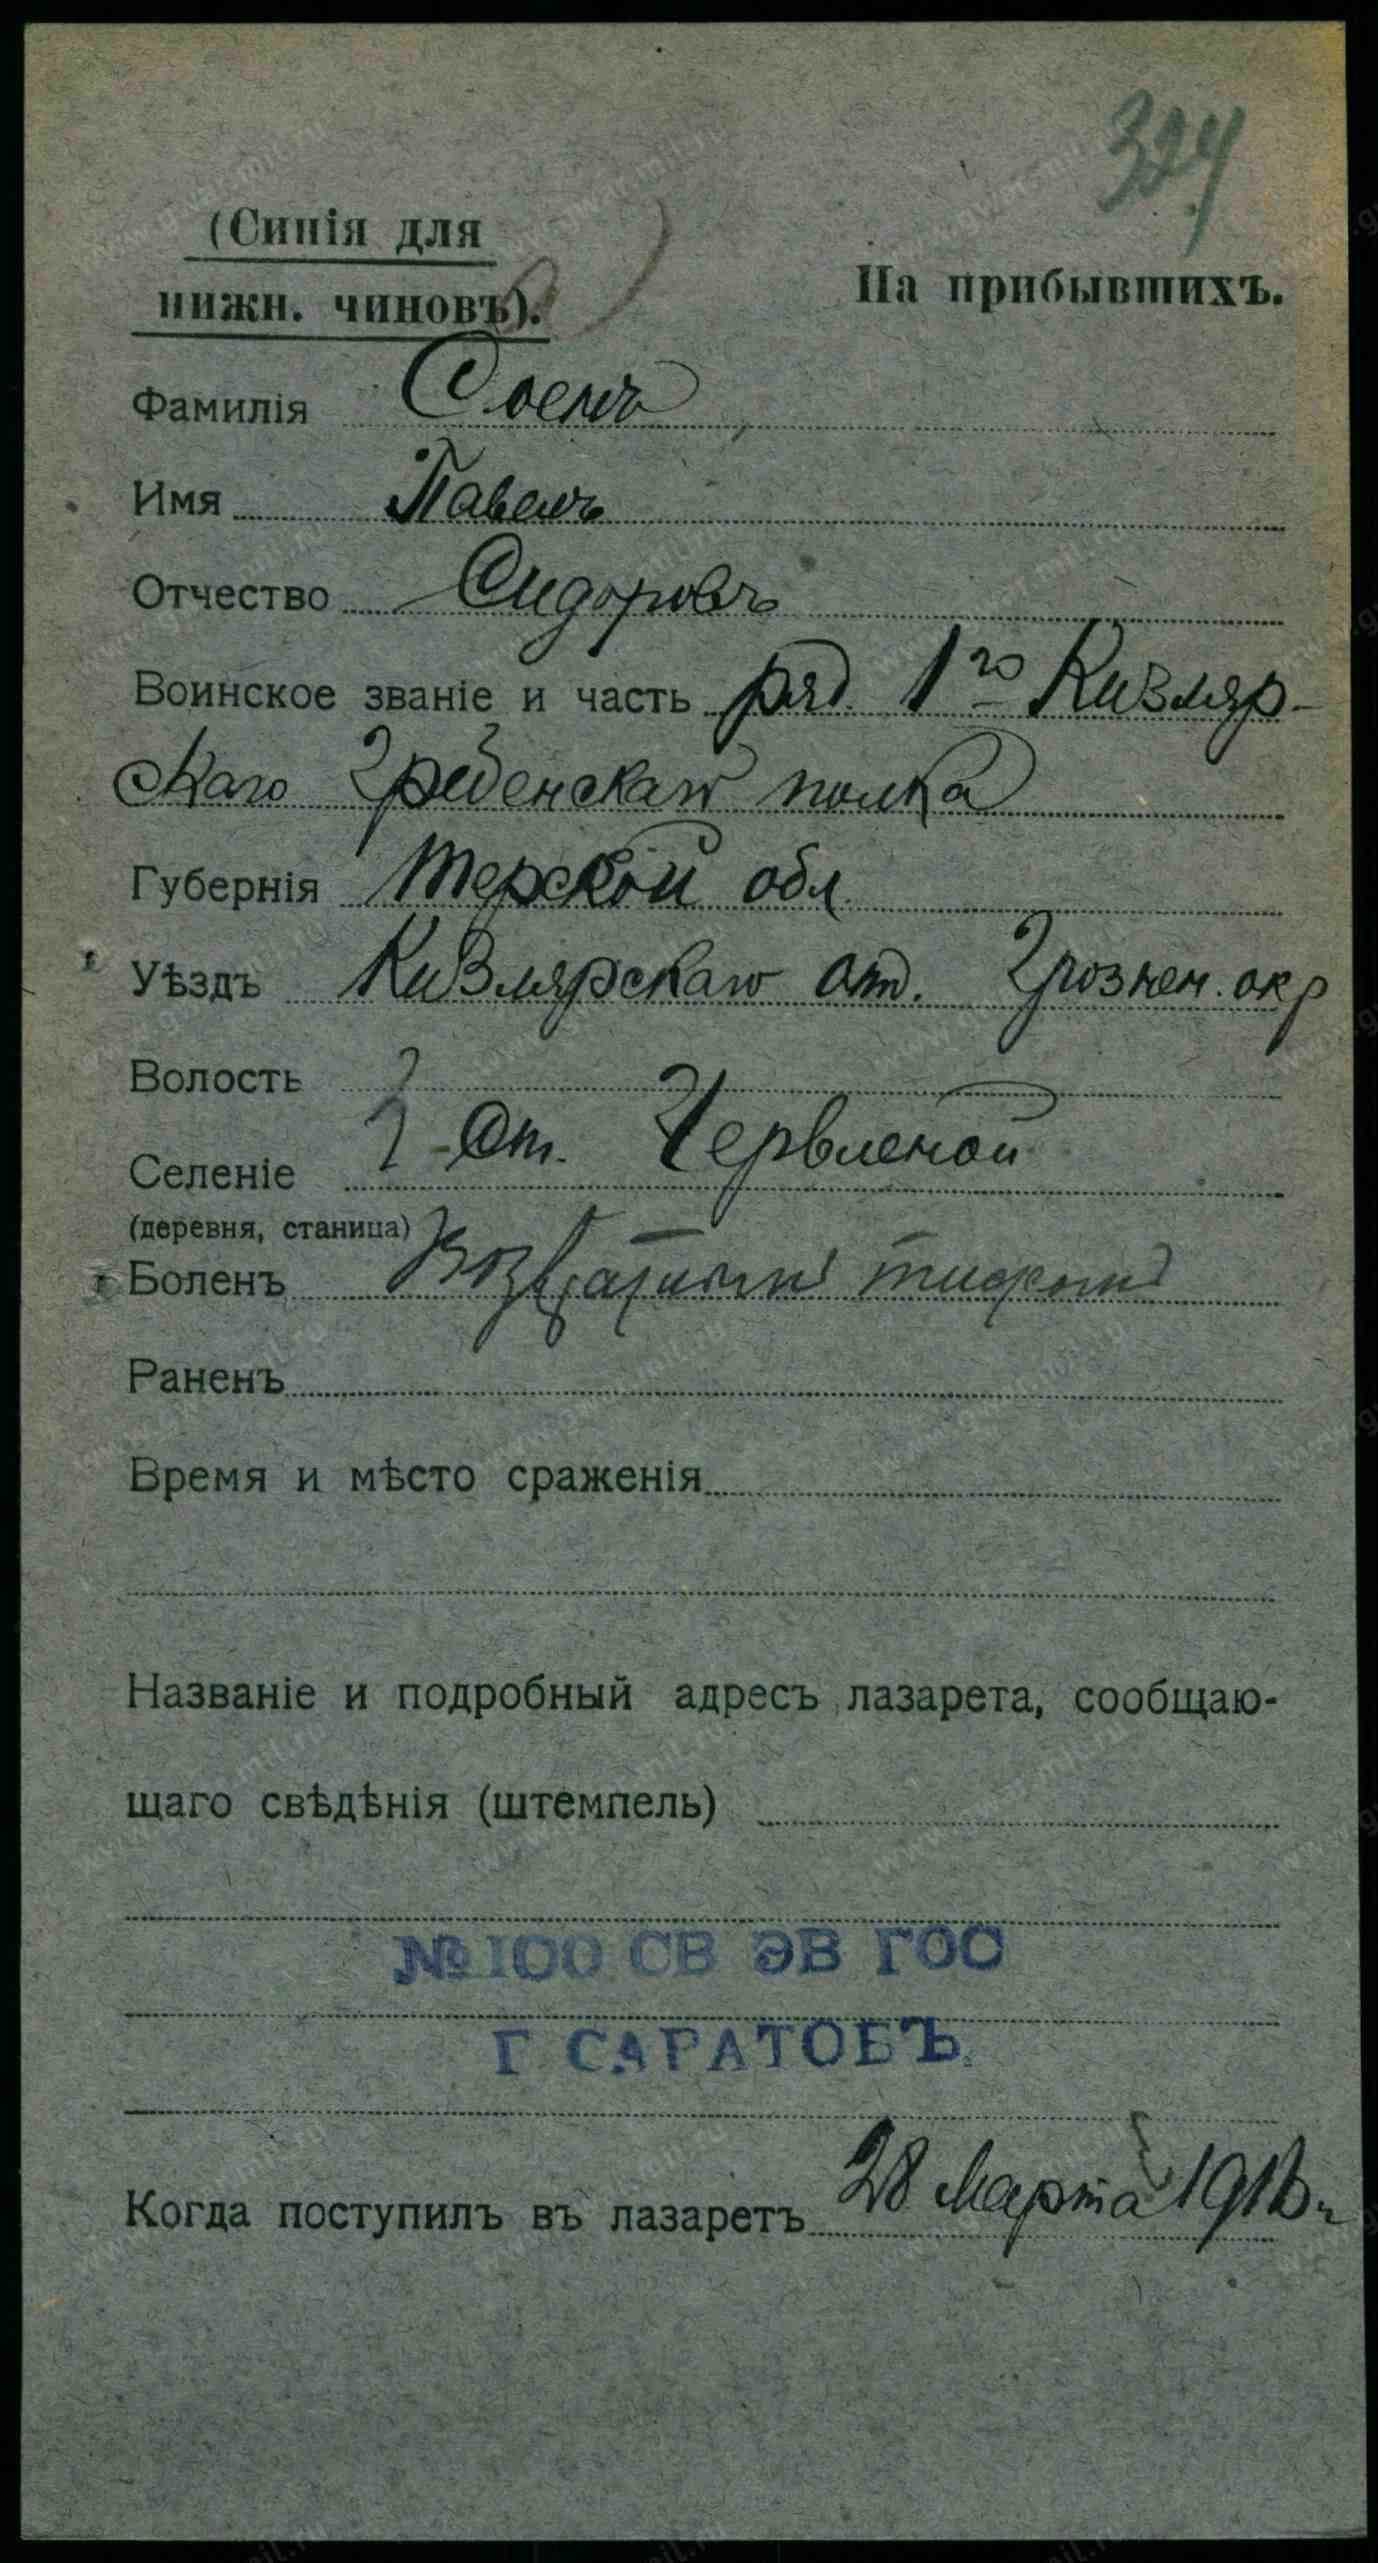 324
(Синія для
нижн. чиновъ).
На прибывшихъ.
Фамилія
Имя Павелъ
Отчество Сидоровъ
Воинское званіе и часть ряд. 1го Кизляр-
скаго Гребенскаго полка
Губернія Терской обл.
Уѣздъ Кизлярскаго отд. Грознен. окр
Волость
Селеніе Ст. Червленой
(деревня, станица)
Боленъ Возвратным тифом
Раненъ
Время и мѣсто сраженія
Названіе и подробный адресъ лазарета, сообщаю-
щаго свѣдѣнія (штемпель)
№100 СВ ЭВ ГОС
Г САРАТОВЪ.
Когда поступилъ въ лазаретъ 28 Марта